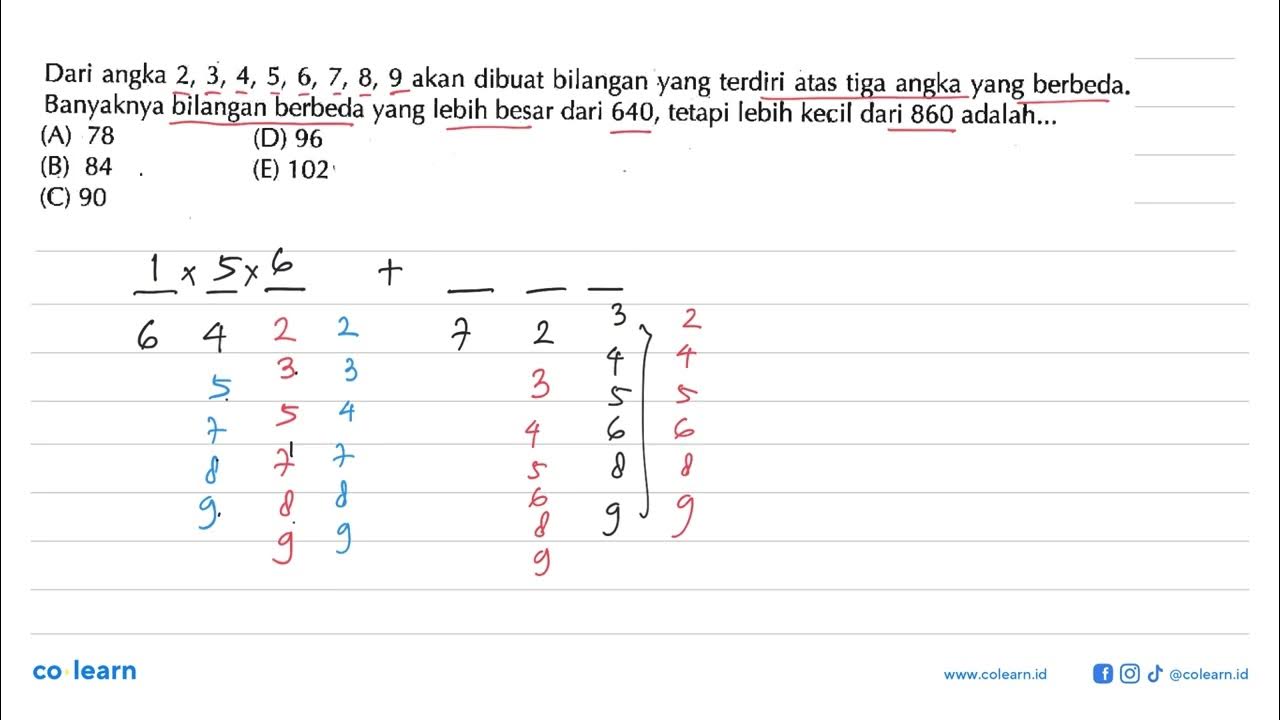 Dari angka 2, 3, 4, 5, 6, 7, 8, 9 akan dibuat bilangan yang terdiri atas tiga angka yang berbeda.
Banyaknya bilangan berbeda yang lebih besar dari 640, tetapi lebih kecil dari 860 adalah...
(A) 78 (D) 96
(B) 84 (E) 102
(C) 90
1 × 5 × 6 +
6 4 2 2 7 2 3 2
3 3 4 4
5 3 5 5
5 4 4 6 6
7 7 7 5 8 8
8 8 8 6 9 9
9 9 9 8
9
co learn
www.colearn.id @colearn.id